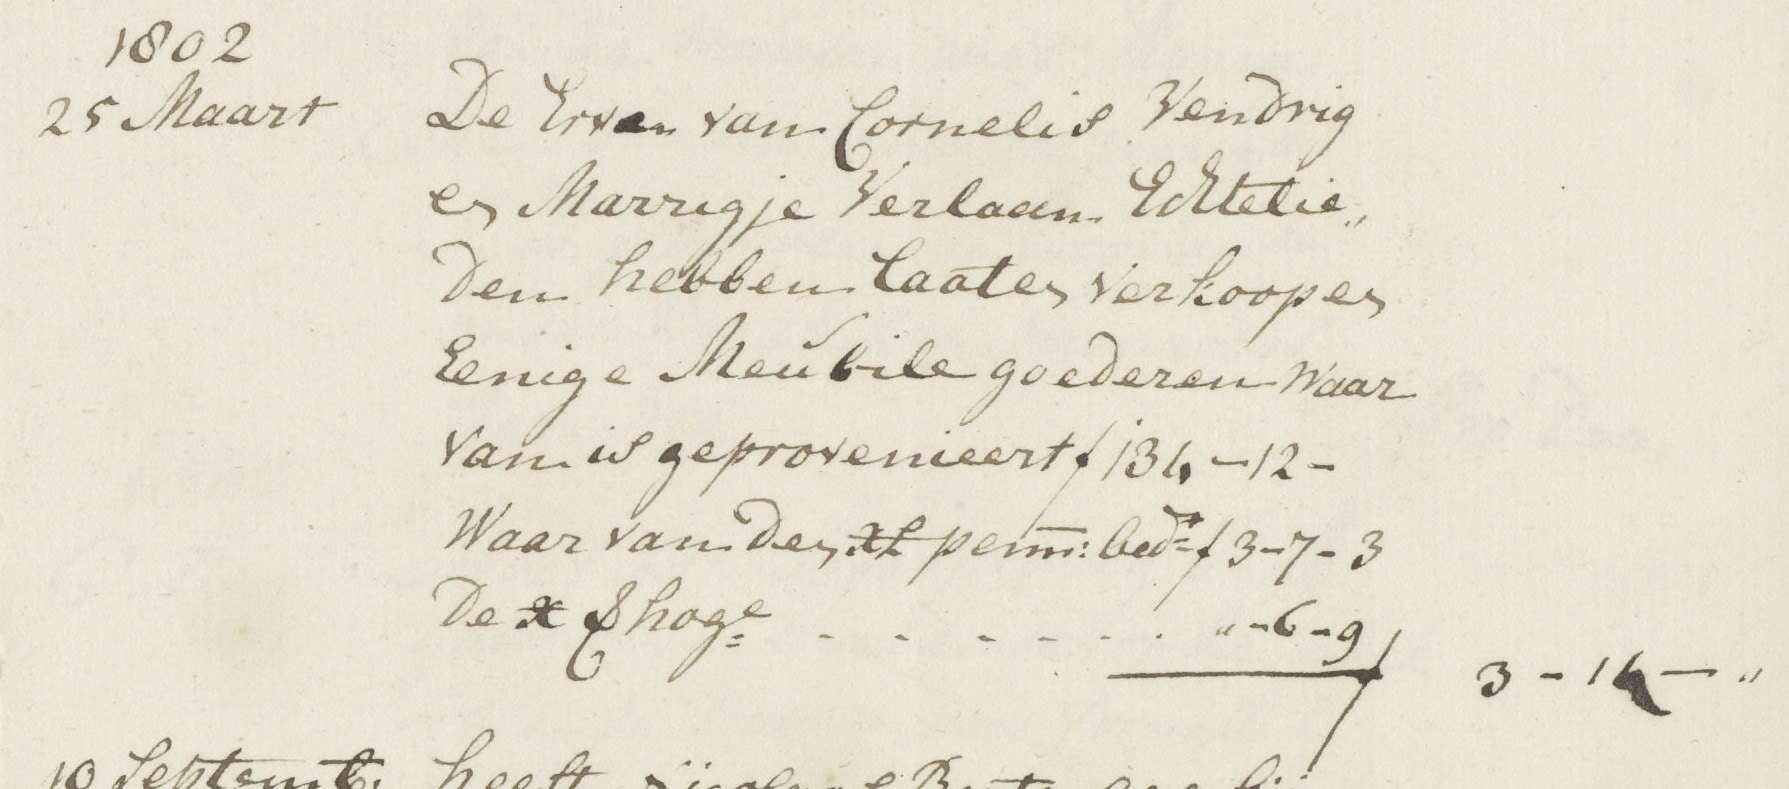 1802
25 Maart De Erven van Cornelis Vendrig
en Marrigje Verlaan Echtelie„
den hebben laaten verkoopen
Eenige Meubile goederen Waar
van is geprovenieert f 134-12-
Waar van den XL penn: bedr f 3-7-3
De X Phoge . . . . . . . „-6-9
f 3-14-„
10 Septemb: heeft